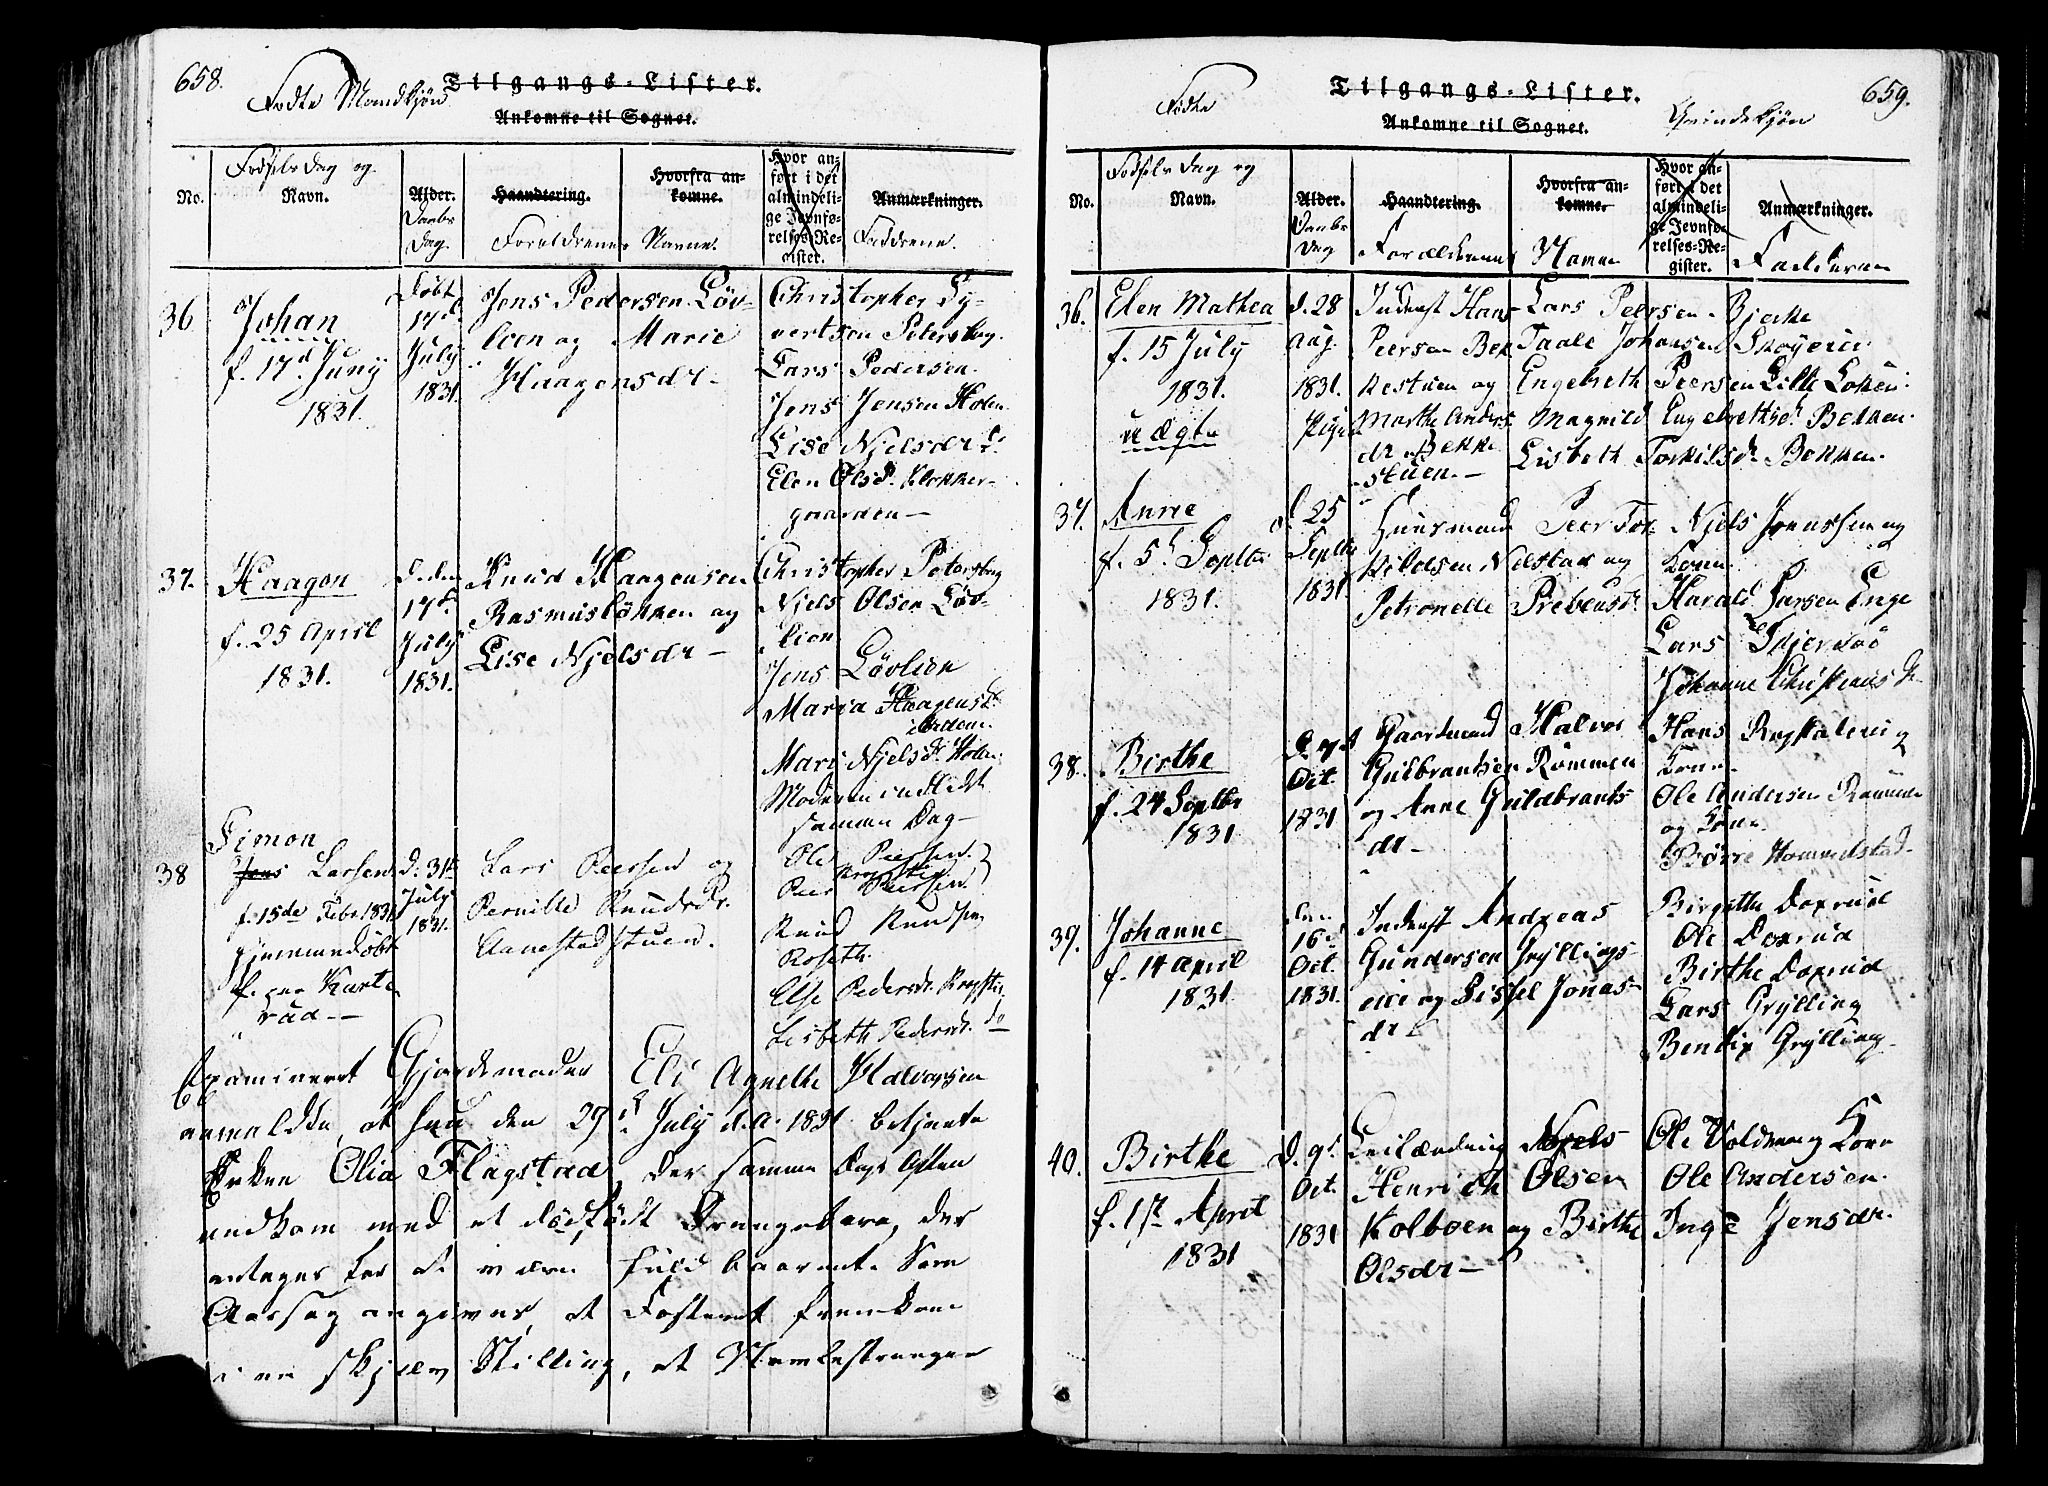 658.
Fødte Mandkjøn
Tilgangs-Lister.
Ankomne til Sognet.
No.
Fødsels Dag og
Navn.
Alder.
Daabs
Dag.
Haandtering.
Hvorfra an-
komne.
Forældrenes Navne.
Hvor an-
ført i det
almindeli-
ge Jevnfø-
relses-Re-
gister.
Anmærkninger.
Faddrene.
36
Johan
f. 17d Juny
1831.
Døbt
17d
July
1831.
Jens Pedersen Løv-
lien og Marie
Haagensdr
Christopher Sy-
vertsen Petersbog
Lars Pedersen
Jens Jensen Holen
Lise Njelsdr
Elen Olsd. Klokker-
gaarden
37.
Haagen
f. 25 April
1831.
D. den
17de
July
1831.
Knud Haagensen
Rasmusløkken og
Lise Njelsdr
Christopher Petersbog
Njels Olsen Løv-
lien
Jens Løvlien
Maria Haagensd.
Mari Njelsdr Holen
Moderen indledt
samme Dag
38
Simon
Jens Larsen
f. 15de Febr. 1831
hjemmedøbt
D. 31te
July
1831.
Lars Peersen og
Pernille Knudsdr.
Aanestadstuen.
Ole Peersen
Peer Peersen
Knud Knudsen
Roseth.
Else Pedersdr.
Lisbeth Pedersdr. do
Examineret Gjordemoder Eli Agnethe Halvorsen
anmeldte, at hun den 29d July d.A. 1831 betjente
Enken Olia Flagstad, der samme Dags Aften
nedkom med et dødfødt Drengebarn, der
antages for at være fuldbaaret. Som
Aarsag angives, at Fosteret fremkom
i en skjæv Stilling, at Navlestrængen
Fødte
Tilgangs-Lister.
Ankomne til Sognet.
Qvindekjøn
659.
No.
Fødsels Dag og
Navn.
Alder.
Daabs
Dag
Haandtering.
Hvorfra an-
komne.
Forældrenes Navne
Hvor an-
ført i det
almindeli-
ge Jevnfø-
relses-Re-
gister.
Anmærkninger.
Fadderne
36.
Elen Mathea
f. 15 July
1831.
uægte
d. 28
Aug.
1831.
Inderst Hans
Peersen Bek
kestuen og
Marthe Anders
dr Bekke
stuen.
Lars Peersen Bjerke
Taale Johansen
Engebreth Peersen Lille Løken
Magnild Engebrethsdr Bekken
Lisbeth Torkilsdr Bekken.
37.
Anne
f. 5d Septbr
1831.
d. 25
Septbr
1831.
Huusmand Peer Tor
kildsen Nilstad og
Petronelle Prebensdr
Njels Jonassen og
Kone
Harald Larsen Enge
Lars
Johanne Christiansdr
38.
Birthe
f. 24 Septbr
1831.
Oct.
1831
Gaardmand Halvor
Gulbrantsen Rømmen
og Anne Guldbrants
dr
Hans
Kone
Ole Andersen Rømmen
og Kone
Børre Hommelstad
39.
Johanne
f. 14 April
1831.
den
16d
Oct.
1831.
Inderst Andreas
Gundersen Gryllings-
eie og Lissel Jonas-
dr
Birgithe Doxrud
Ole Doxrud
Birthe Doxrud
Lars Grylling
Bendix Grylling
40.
Birthe
f. 1st April
1831
D. 9d
Oct.
1831
Leilænding Njels
Henrich Olsen
Kolboen og Birthe
Olsdr
Ole Voldeneng Kone
Ole Andersen.
Inge Jensdr.